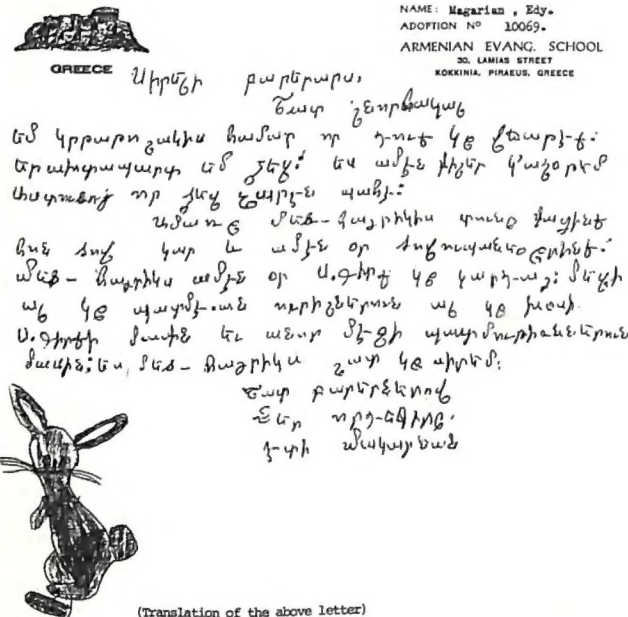 NAME: Magarian , Edy.
ADOPTION Nº 10069.
ARMENIAN EVANG. SCHOOL
30, LAMIAS STREET
KOKKINIA, PIRAEUS, GREECE
GREECE
Սիրելի բարերարս,
Շատ շնորհակալ
եմ կրթաթոշակիս համար որ դուք կը վճարէք:
Երախտապարտ եմ ձեզ: Ես ամէն գիշեր կ'աղօթեմ
Աստուծոյ որ ձեզ պահէ:
Ամառը մեծ-հայրիկիս տունը գացինք
հոն ծով կար և ամէն օր
մեծ-հայրիկս ամէն օր Ս.Գիրք կը կարդար: մեզի
ալ կը պատմէ. ան ուրիշներուն ալ կը խօսի
Ս.Գիրքի մասին եւ անոր մէջի պատմութիւններուն
մասին: Ես մեծ-հայրիկս շատ կը սիրեմ:
Շատ բարեւներով
Ձեր որդեգիրը.
Էտի Մակարեան
(Translation of the above letter)